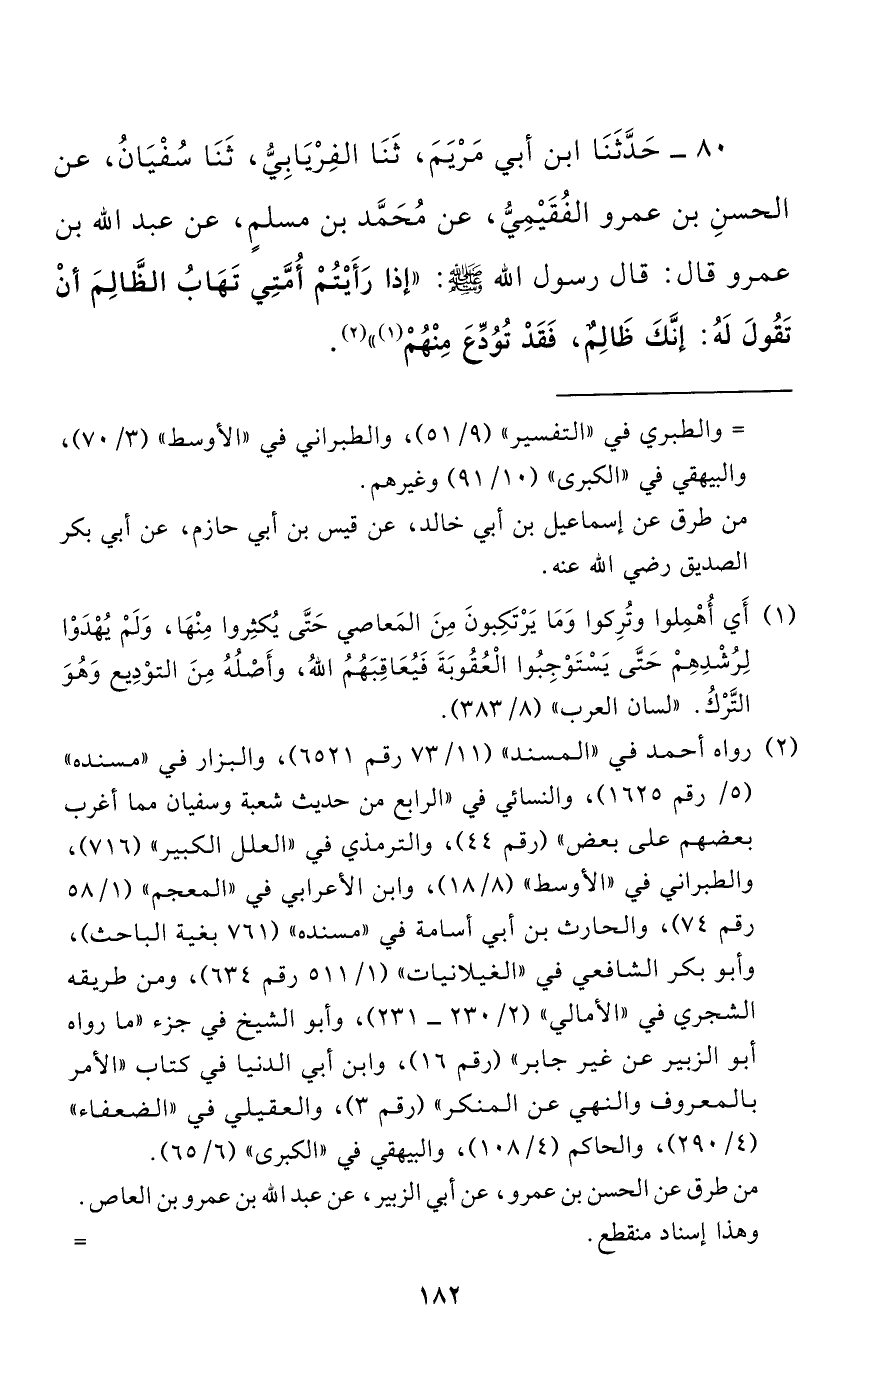 ٨٠ ـ حَدَّثَنَا ابن أبي مَرْيَمَ، ثَنَا الفِرْيَابِيُّ، ثَنَا سُفْيَانُ، عن
الحسنِ بن عمرو الفُقَيْمِيُّ، عن مُحَمَّد بن مسلمٍ، عن عبد الله بن
عمرو قال: قال رسول الله ﷺ: «إذا رَأَيْتُمْ أُمَّتِي تَهَابُ الظَّالِمَ أنْ
تَقُولَ لَهُ: إنَّكَ ظَالِمٌ، فَقَدْ تُوُدِّعَ مِنْهُمْ(١)»(٢).
= والطبري في «التفسير» (٩/ ٥١)، والطبراني في «الأوسط» (٣/ ٧٠)،
والبيهقي في «الكبرى» (١٠/ ٩١) وغيرهم.
من طرق عن إسماعيل بن أبي خالد، عن قيس بن أبي حازم، عن أبي بكر
الصديق رضي الله عنه.
(١) أَي أُهْمِلوا وتُرِكوا وَمَا يَرْتَكِبونَ مِنَ المَعاصي حَتَّى يُكثِروا مِنْهَا، وَلَمْ يُهْدَوْا
لِرُشْدِهِمْ حَتَّى يَسْتَوْجِبُوا الْعُقُوبَةَ فَيُعَاقِبَهُمُ اللهُ، وأَصْلُهُ مِنَ التوْدِيع وَهُوَ
التَّرْكُ. «لسان العرب» (٨/ ٣٨٣).
(٢) رواه أحمد في «المسند» (١١/ ٧٣ رقم ٦٥٢١)، والبزار في «مسنده»
(٥/ رقم ١٦٢٥)، والنسائي في «الرابع من حديث شعبة وسفيان مما أغرب
بعضهم على بعض» (رقم ٤٤)، والترمذي في «العلل الكبير» (٧١٦)،
والطبراني في «الأوسط» (٨/ ١٨)، وابن الأعرابي في «المعجم» (١/ ٥٨
رقم ٧٤)، والحارث بن أبي أسامة في «مسنده» (٧٦١ بغية الباحث)،
وأبو بكر الشافعي في «الغيلانيات» (١/ ٥١١ رقم ٦٣٤)، ومن طريقه
الشجري في «الأمالي» (٢/ ٢٣٠ ـ ٢٣١)، وأبو الشيخ في جزء «ما رواه
أبو الزبير عن غير جابر» (رقم ١٦)، وابن أبي الدنيا في كتاب «الأمر
بالمعروف والنهي عن المنكر» (رقم ٣)، والعقيلي في «الضعفاء»
(٤/ ٢٩٠)، والحاكم (٤/ ١٠٨)، والبيهقي في «الكبرى» (٦/ ٦٥).
من طرق عن الحسن بن عمرو، عن أبي الزبير، عن عبد الله بن عمرو بن العاص.
وهذا إسناد منقطع. =
١٨٢